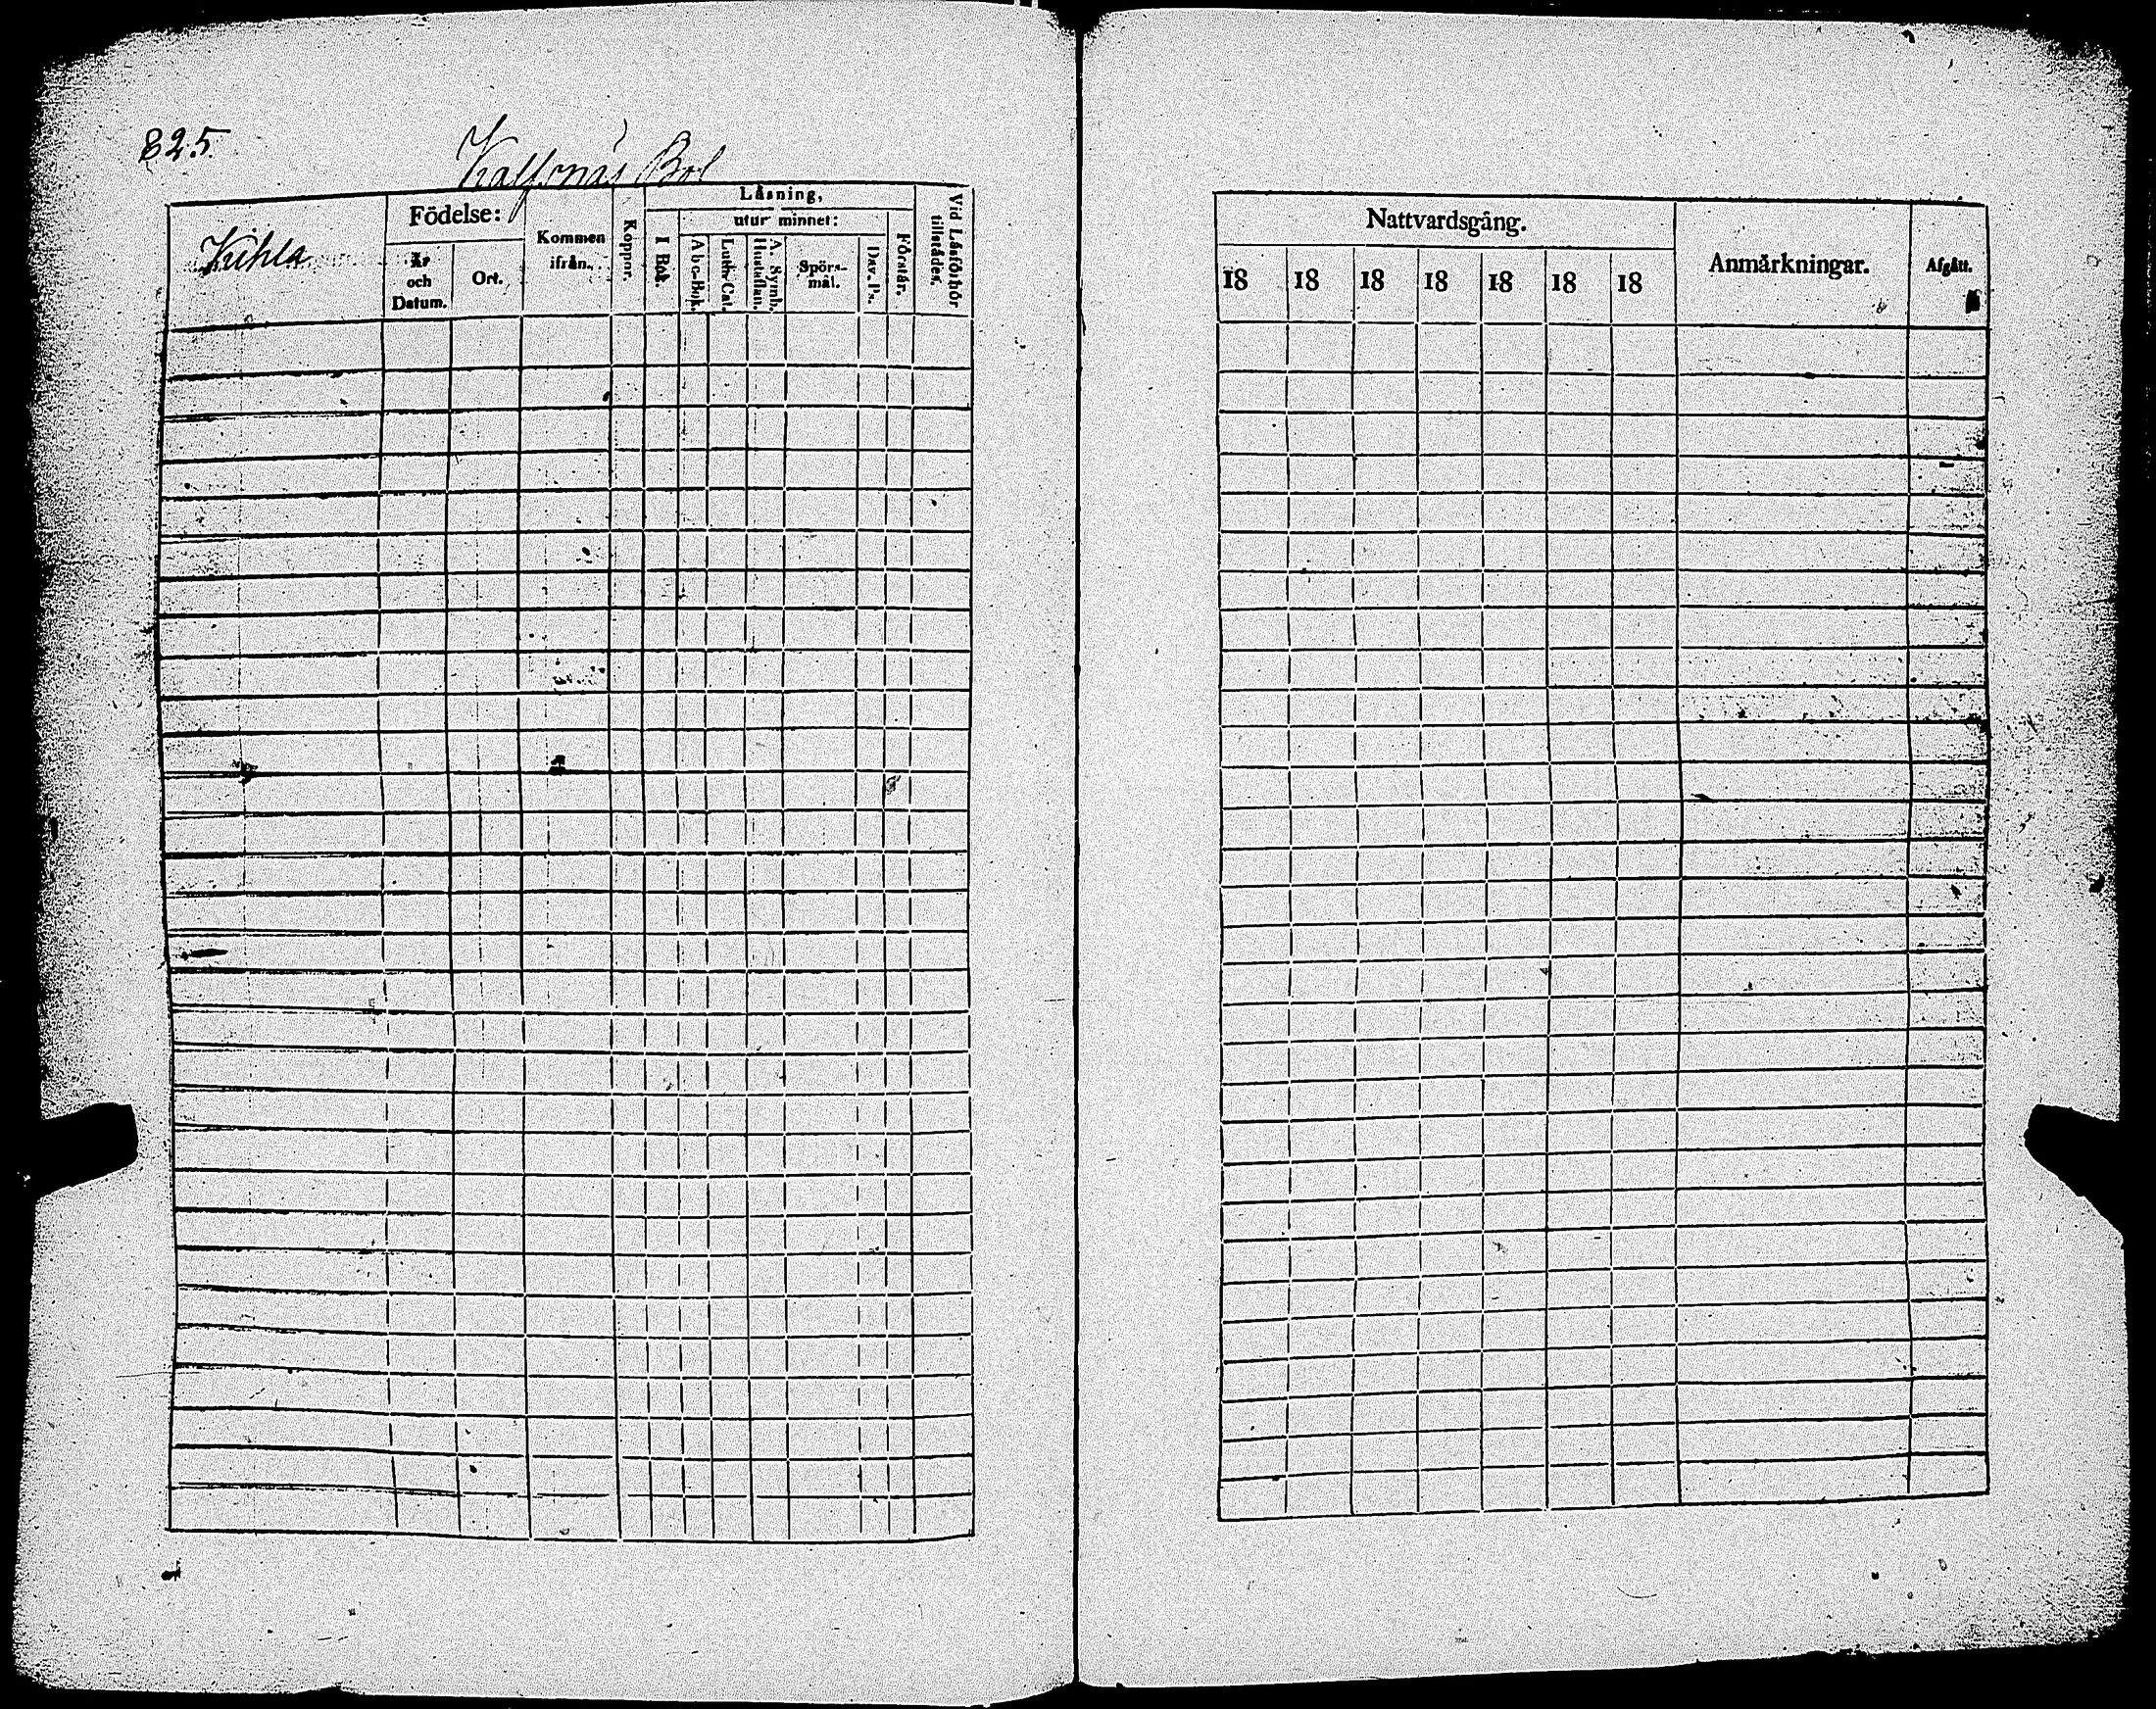 825.
Kalfsnäs Bol
Kihla
Födelse:
År
och
Datum.
Ort.
Kommen
ifrån.
Koppor.
Läsning,
I Bok.
utur minnet:
Abc-Bok.
Luth. Cat.
A. Symb.
Hustaflan.
Spörs-
mål.
Dav. Ps.
Förstår.
Vid Läsförhör
tillstädes.
Nattvardsgång.
18 18 18 18 18 18 18
Anmärkningar.
Afgått.